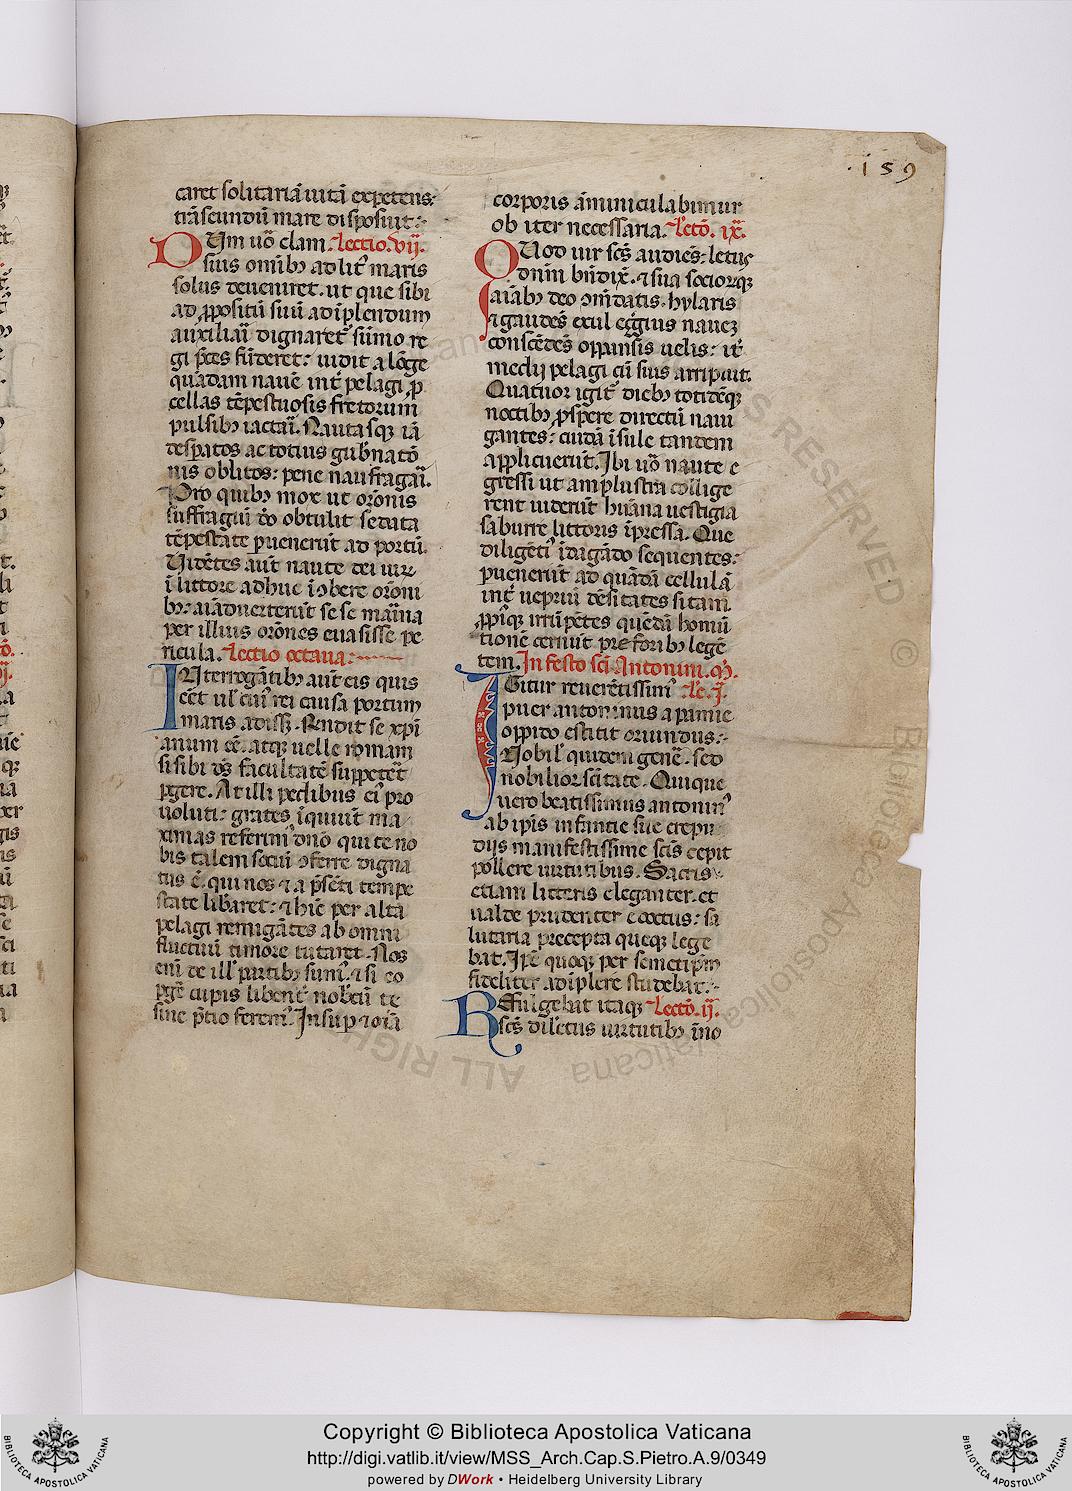 ·159
caret solitariā uitā expetens:
trāseundū mare disposuit:·
DUm uō clam. Lectio. vij.
suis omībꝰ ad litꝰ maris
solus deueniret. ut que sibi
ad ꝓpositū suū adīplendum
auxiliaū dignaret᷑ sūmo re
gi p̄ces fūderet: uidit a lōge
quādam nauē int᷑ pelagi ꝓ
cellas tēpestuosis fretorum
pulsibꝰ iactaū. Nautasqꝫ iā
desꝑatos ac totius gub̄natō
nis oblitos: pene naufragaū.
Pro quibꝰ mox ut orōnis
suffragiū dō obtulit sedata
tēpestate ꝑuenerūt ad portū.
Uidētes aūt naute dei uirꝫ
ī littore adhuc īcōbere orōni
bꝰ: aīaduerterūt se se maīna
per illius orōnes euasisse pe
ricula. Lectio octaua:
INterrogātibꝰ aūt eis quis
eēt ul᷑ cuiꝰ rei causa portum
maris adissꝫ. Rendit se xp̄i
anum eē. atqꝫ uelle romam
si sibi dꝰ facultatē suppetēt
ꝑgere. At illi pedibus eiꝰ pro
uoluti: grates īquiūt ma
ximas referimꝰ dnō qui te no
bis talem sociū ꝯferre digna
tus ē. qui nos ⁊ a p̄sēti tempe
state lib̄aret: ⁊ hīc per alta
pelagi remigātes ab omni
fluctuū timore tutaret. Nos
eni᷑ de ill᷑ partibꝰ sumꝰ. ⁊ si eo
ꝑgē cupis libent᷑ nob̄cū te
sine p̄tio feremꝰ. Insuꝑ ⁊ oīa
corporis āminicula bimur
ob iter necessaria. Lectō. ix.
QUod uir scs̄ audiēs: letus
dnm̄ bn̄dix̄. ⁊ sua socioruꝫ
aīabꝰ deo ꝯm̄datis. hylaris
⁊ gaudēs exul egꝰgius nauez
conscēdēs oppansis uelis: it᷑
medij pelagi cū suis arripuit.
Quatuor igit᷑ diebꝰ totidēqꝫ
noctibꝰ ꝓspere directū naui
gantes: cuidā īsule tandem
applicuerūt. Ibi uō naute e
gressi ut amplustra collige
rent uiderūt hūana uestigia
saburre littoris īpressa. Que
diligēti᷑ īdagādo sequentes:
ꝑuenerūt ad quādā cellulā
int᷑ ueprium dēsitates sitam
ꝓpiꝰqꝫ irrūpētes quēdā homū
tionē cernūt pre foribꝰ legē
tem. In festo sci Antonini. m̄.
IGitur reuerētissimꝰ Le. j.
puer antoninus apamie
oppido extitit oriundus:·
Nobil᷑ quidem genē. sed
nobilior scītate. Quique
uero beatissimus antoninꝰ
ab ipīs infantie sue crepu
dijs manifestissime scīs cepit
pollere uirtutibus. Sacris·
etiam litteris eleganter. et
ualde prudenter edoctus: sa
lutaria precepta queqꝫ lege
bat. Ipē quoqꝫ per semetip̄m
fideliter adīplere studebat:·
REfulgebat itaqꝫ Lectō. ij.
scs̄ dilectus uirtutibꝰ. īmo
ALL RIGHTS RESERVED © Biblioteca Apostolica Vaticana
Copyright © Biblioteca Apostolica Vaticana
http://digi.vatlib.it/view/MSS_Arch.Cap.S.Pietro.A.9/0349
powered by DWork • Heidelberg University Library
BIBLIOTECA APOSTOLICA VATICANA
BIBLIOTECA APOSTOLICA VATICANA